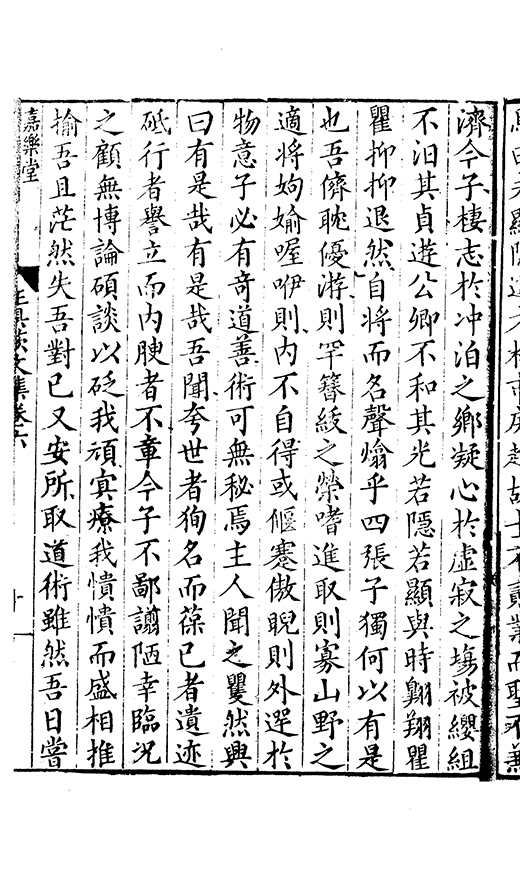 濟今子棲志於冲泊之鄉凝心於虛寂之塲被纓組
不汩其貞遊公卿不和其光若隱若顯與時翺翔瞿
瞿抑抑退然自將而名聲熻乎四張子獨何以有是
也吾儕耽優游則罕簪綾之榮嗜進取則寡山野之
適將姁媮喔咿則内不自得或偃蹇傲睨則外逕於
物意子必有竒道善術可無秘焉主人聞之瞿然興
曰有是哉有是哉吾聞夸世者狥名而葆已者遺迹
砥行者譽立而内腴者不章今子不鄙謭陋幸臨况
之顧無博論碩談以砭我頑寘療我憒憒而盛相推
揄吾且茫然失吾對已又安所取道術雖然吾日嘗
嘉樂堂
文集卷六
十一